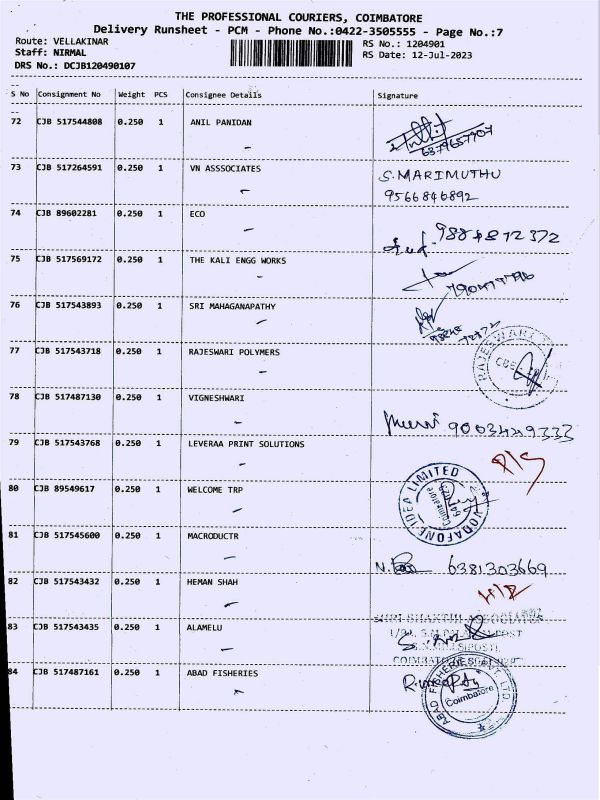 THE PROFESSIONAL COURIERS, COIMBATORE
Delivery Runsheet - PCM - Phone No.:0422-3505555 - Page No.:7
Route: VELLAKINAR
RS No.: 1204901
Staff: NIRMAL
RS Date: 12-Jul-2023
DRS No.: DCJB120490107
S No Consignment No Weight PCS Consignee Details Signature
72 CJB 517544808 0.250 1 ANIL PANIDAN
6379657707
73 CJB 517264591 0.250 1 VN ASSSOCIATES
S. MARIMUTHU
9566846892
74 CJB 89602281 0.250 1 ECO
9884812372
75 CJB 517569172 0.250 1 THE KALI ENGG WORKS
76 CJB 517543893 0.250 1 SRI MAHAGANAPATHY
77 CJB 517543718 0.250 1 RAJESWARI POLYMERS
78 CJB 517487130 0.250 1 VIGNESHWARI
9003429333
79 CJB 517543768 0.250 1 LEVERAA PRINT SOLUTIONS
80 CJB 89549617 0.250 1 WELCOME TRP
VODAFONE IDEA LIMITED
Coimbatore
81 CJB 517545600 0.250 1 MACRODUCTR
6381303669
82 CJB 517543432 0.250 1 HEMAN SHAH
SHRI SHAKTHI ASSOCIATES
83 CJB 517543435 0.250 1 ALAMELU
84 CJB 517487161 0.250 1 ABAD FISHERIES
ABAD FISHERIES PVT. LTD
Coimbatore